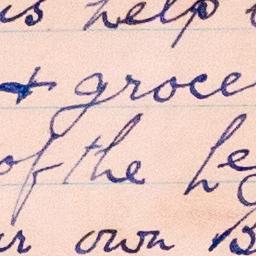 us help
& groce
of the he
ur own B